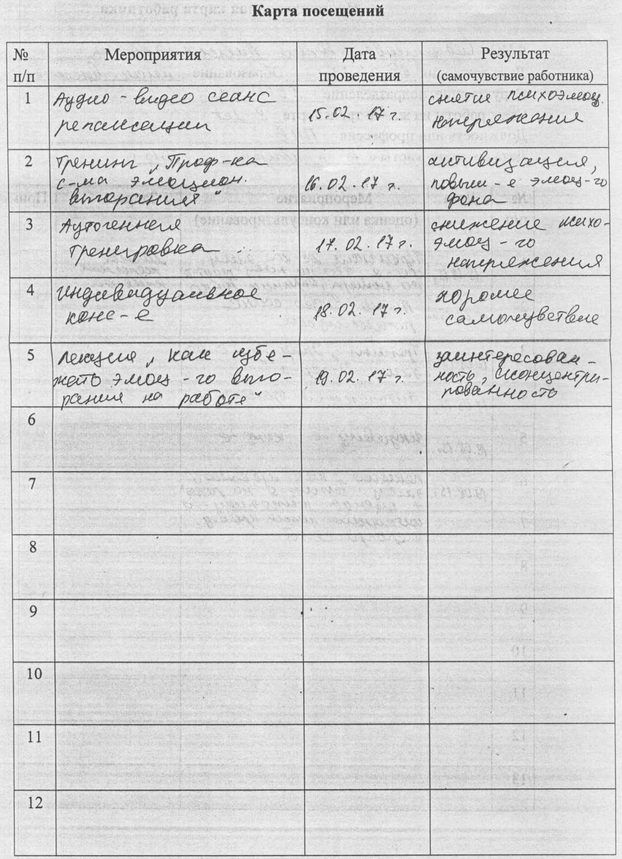 Карта посещений
№
п/п
Мероприятия
Дата
проведения
Результат
(самочувствие работника)
1
Аудио - видео сеанс
релаксации
15.02.17г.
снятие психоэмоц.
напряжения
2
Тренинг „Проф-ка
с-ма эмоцион.
выгорания"
16.02.17г.
активизация,
повыш-е эмоц-го
фона
3
Аутогенная
тренировка
17.02.17г.
снижение психо-
эмоц-го
напряжения
4
Индивидуальное
конс-е
18.02.17г.
хорошее
самочувствие
5
Лекция „Как избе-
жать эмоц-го выго-
рания на работе"
19.02.17г.
заинтересован-
ность, сконцентри-
рованность
6
7
8
9
10
11
12